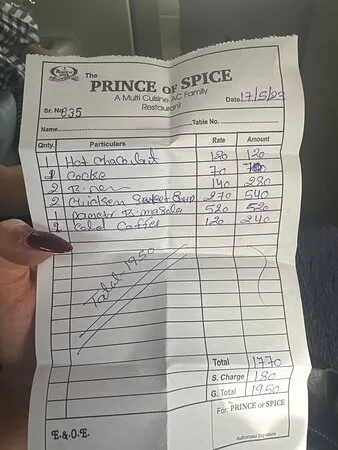 The
PRINCE OF SPICE
A Multi Cuisine AC Family
Restaurant
Sr. No. 835 Date 17/5/29
Name Table No.
Qnty. Particulars Rate Amount
1 Hot chacolart 120 120
1 Cooke 70 70
2 140 280
2 Chicken Soup 270 540
1 Paneer B. masala 520 520
2 Cold Coffee 120 240
Total - 1950
Total 1770
S. Charge 180
G. Total 1950
For: The PRINCE OF SPICE
E.&.O.E. Authorised Signature